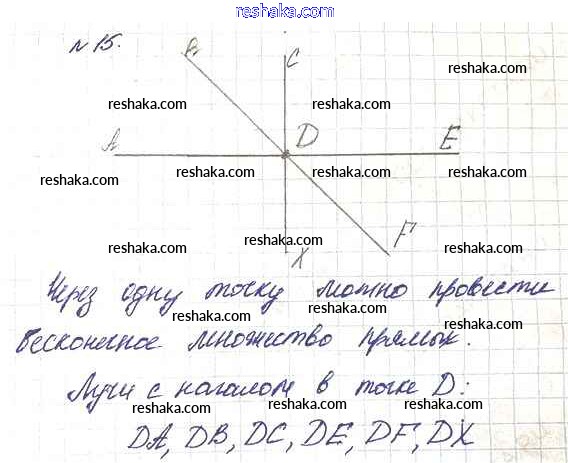 reshaka.com
№ 15.
B C
reshaka.com
reshaka.com reshaka.com
A D E
reshaka.com reshaka.com reshaka.com
reshaka.com reshaka.com reshaka.com
X F
Через одну точку можно провести
reshaka.com reshaka.com
бесконечное множество прямых.
reshaka.com reshaka.com
Лучи с началом в точке D:
reshaka.com reshaka.com
DA, DB, DC, DE, DF, DX
reshaka.com reshaka.com